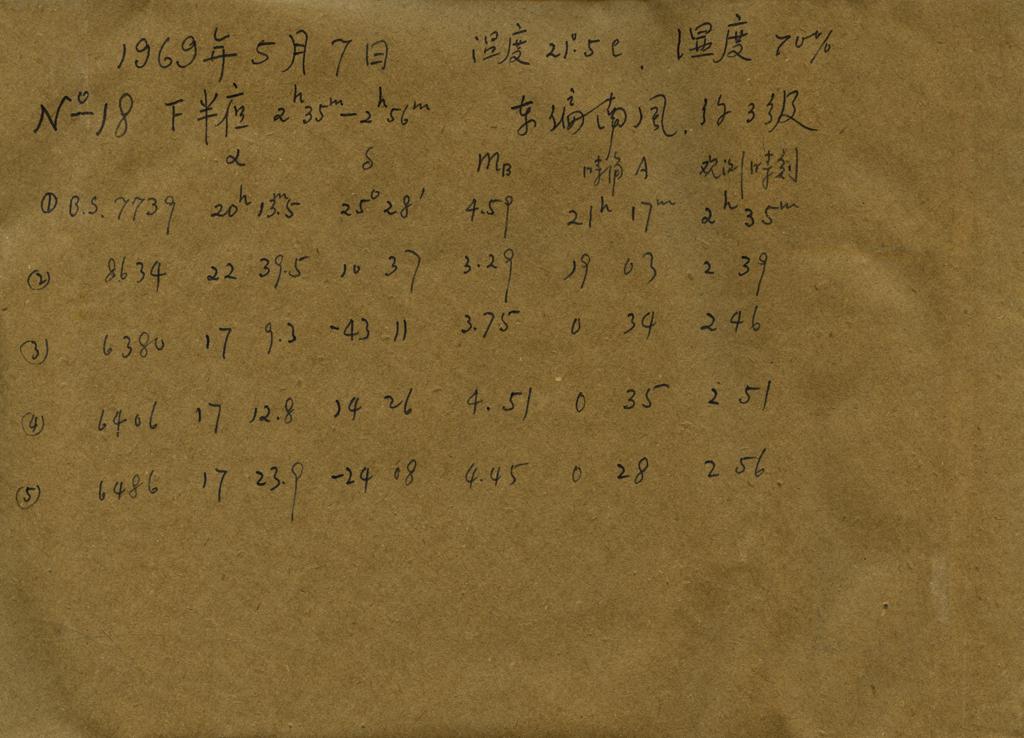 1969年5月7日 温度 21.°5C. 湿度 70%
Nº18 下半夜 2ʰ35ᵐ-2ʰ56ᵐ 东偏南风. 约3级
α δ mB 時角 A 观测時刻
① B.S. 7739 20ʰ 13ᵐ.5 25° 28′ 4.59 21ʰ 17ᵐ 2ʰ 35ᵐ
② 8634 22 39.5 10 37 3.29 19 03 2 39
③ 6380 17 9.3 -43 11 3.75 0 34 2 46
④ 6406 17 12.8 14 26 4.51 0 35 2 51
⑤ 6486 17 23.9 -24 08 4.45 0 28 2 56